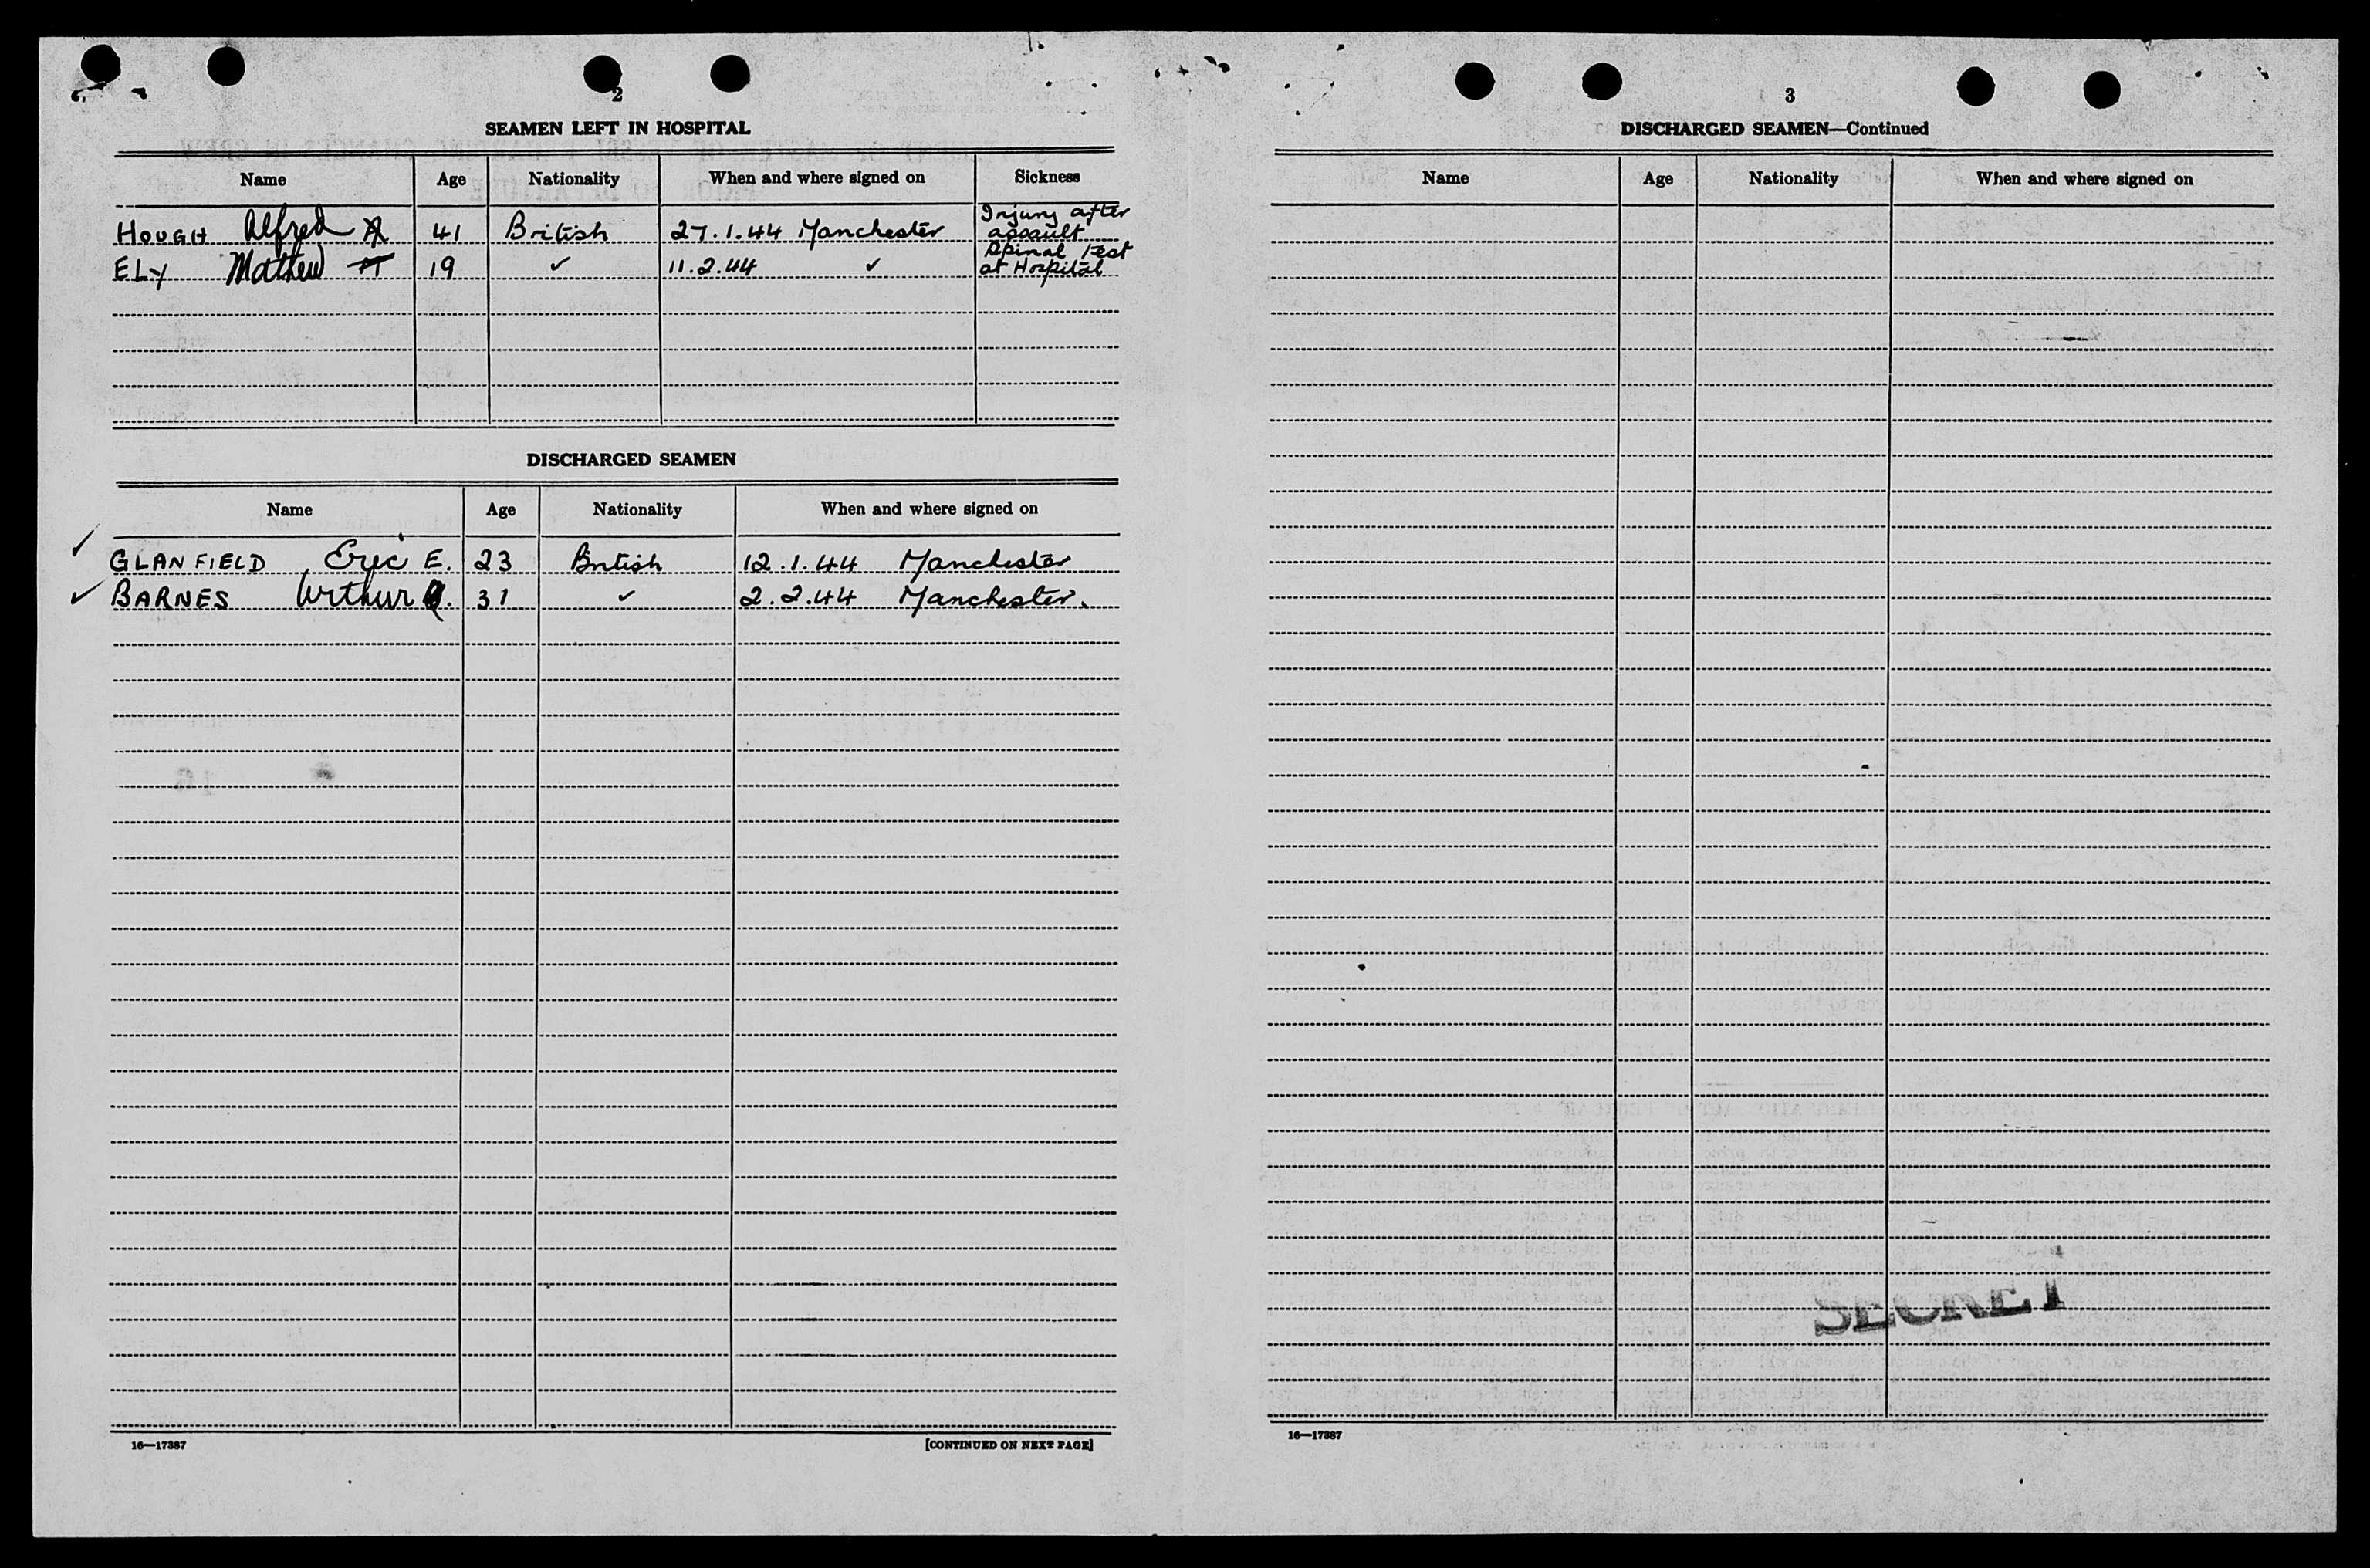 2
SEAMEN LEFT IN HOSPITAL
Name Age Nationality When and where signed on Sickness
HOUGH Alfred 41 British 27.1.44 Manchester Injury after assault
ELY Mathew 19 ✓ 11.2.44 ✓ Spinal Test at Hospital
DISCHARGED SEAMEN
Name Age Nationality When and where signed on
✓ GLANFIELD Eric E. 23 British 12.1.44 Manchester
✓ BARNES Arthur 31 ✓ 2.2.44 Manchester.
16—17387 [CONTINUED ON NEXT PAGE]
3
DISCHARGED SEAMEN—Continued
Name Age Nationality When and where signed on
SECRET
16—17387